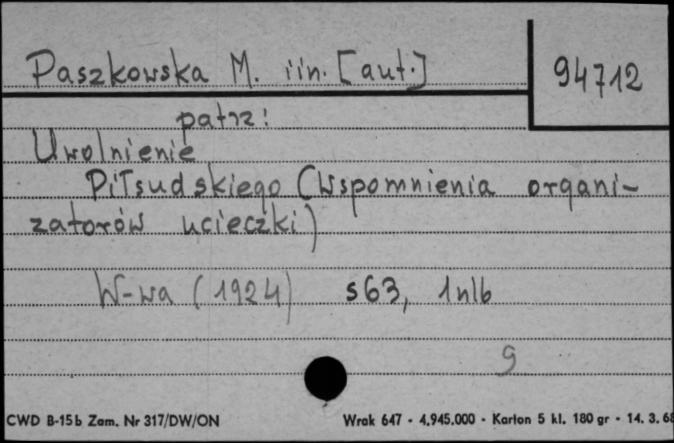 Paszkowska M. i in. [aut.]
94712
patrz:
Uwolnienie
Piłsudskiego (Wspomnienia organi-
zatorów ucieczki)
W-wa (1924) s 63, 1 nlb
9
CWD B-15b Zam. Nr 317/DW/ON
Wrak 647 - 4.945.000 - Karton 5 kl. 180 gr - 14. 3. 68